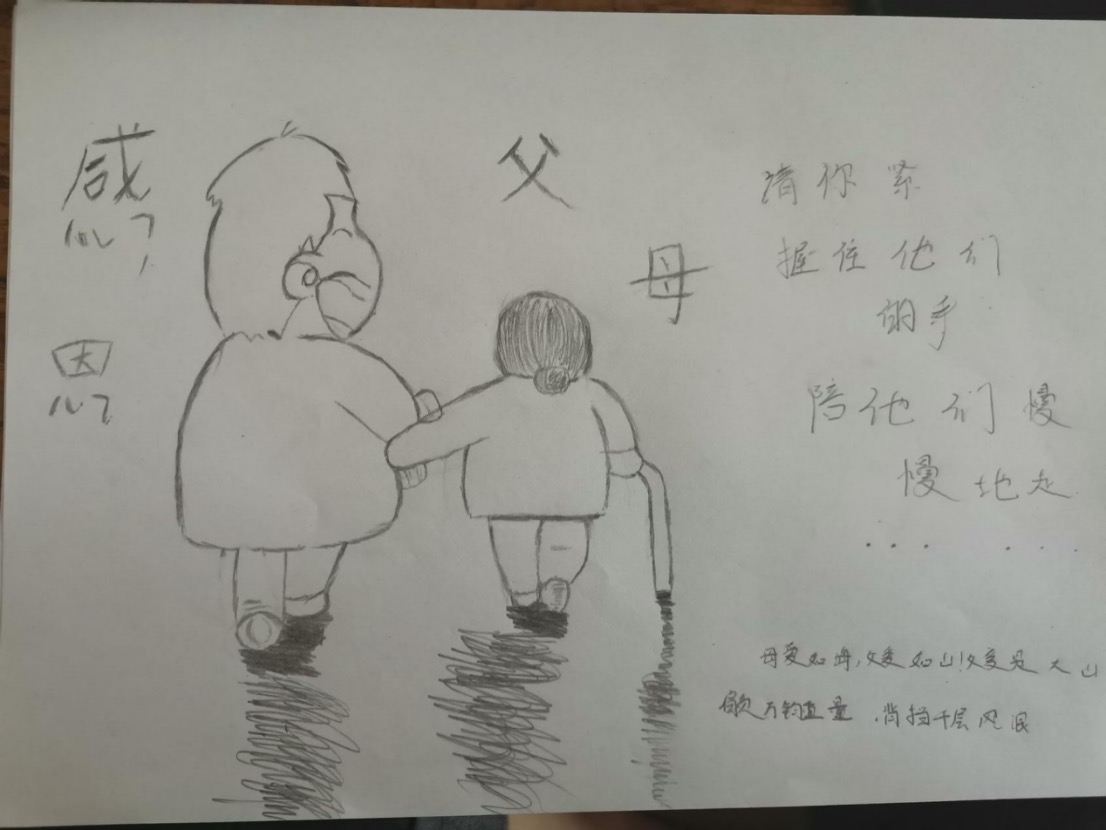 感
恩
父
母
请你紧
握住他们
的手
陪他们慢
慢地走
... ...
母爱如海,父爱如山!父爱是大山
肩负万钧重量,背挡千层风浪